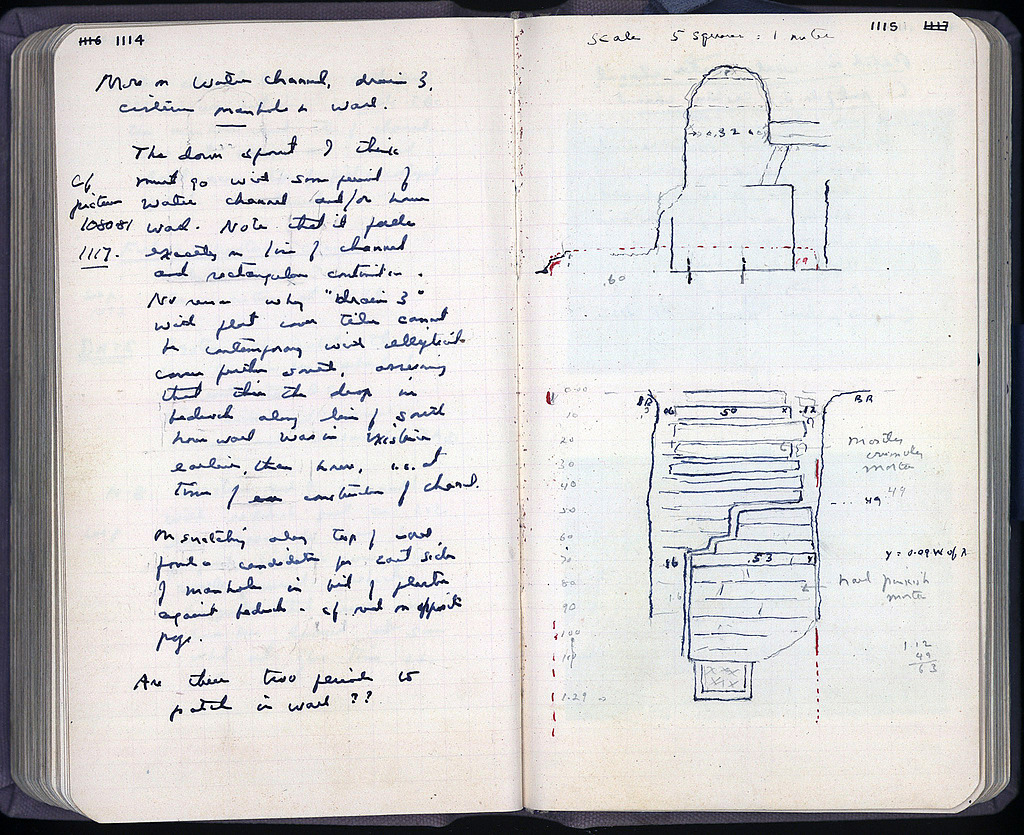 1116 1114
More on Water channel, drain 3,
cistern manhole & wall.
The down spout I think
must go with some period of
Cf
picture
108081
1117.
water channel and/or house
wall. Note that it falls
exactly on line of channel
and rectangular construction.
No reason why "drain 3"
with flat cover tiles cannot
be contemporary with elliptical
cover further south, assuming
that then the drop in
bedrock along line of south
house wall was in existence
earlier, than house, i.e. at
time of construction of channel.
On scratching along top of wall,
found a candidate for east side
of manhole in bit of plaster
against bedrock - cf. red on opposite
page.
Are there two periods to
patch in wall ??
1115 1117
Scale 5 squares = 1 meter
0.32
.60
.19
0.00
10
20
30
40
50
60
70
80
90
100
110
1.29
BR
.06
.50
x
.12
BR
mortar
crumbly
mortar
49
49
.16
.53
y
y = 0.09 W of x
hard pinkish
mortar
16
1.12
49
63